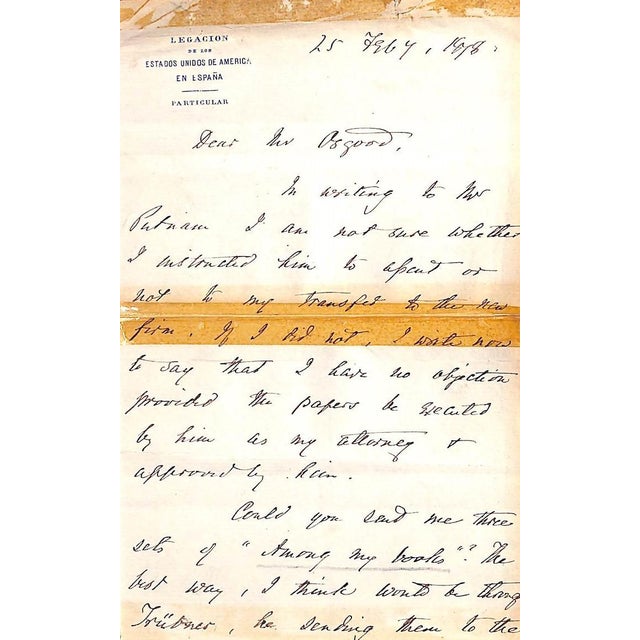 LEGACION
DE LOS
ESTADOS UNIDOS DE AMERICA
EN ESPAÑA
PARTICULAR
25 Feby, 1878.
Dear Mr Osgood,
In writing to Mr
Putnam I am not sure whether
I instructed him to assent or
not to my transfer to the new
firm. If I did not, I write now
to say that I have no objection
provided the papers be executed
by him as my attorney &
approved by him.
Could you send me three
sets of "Among my books"? The
best way, I think would be through
Trübner, he sending them to the